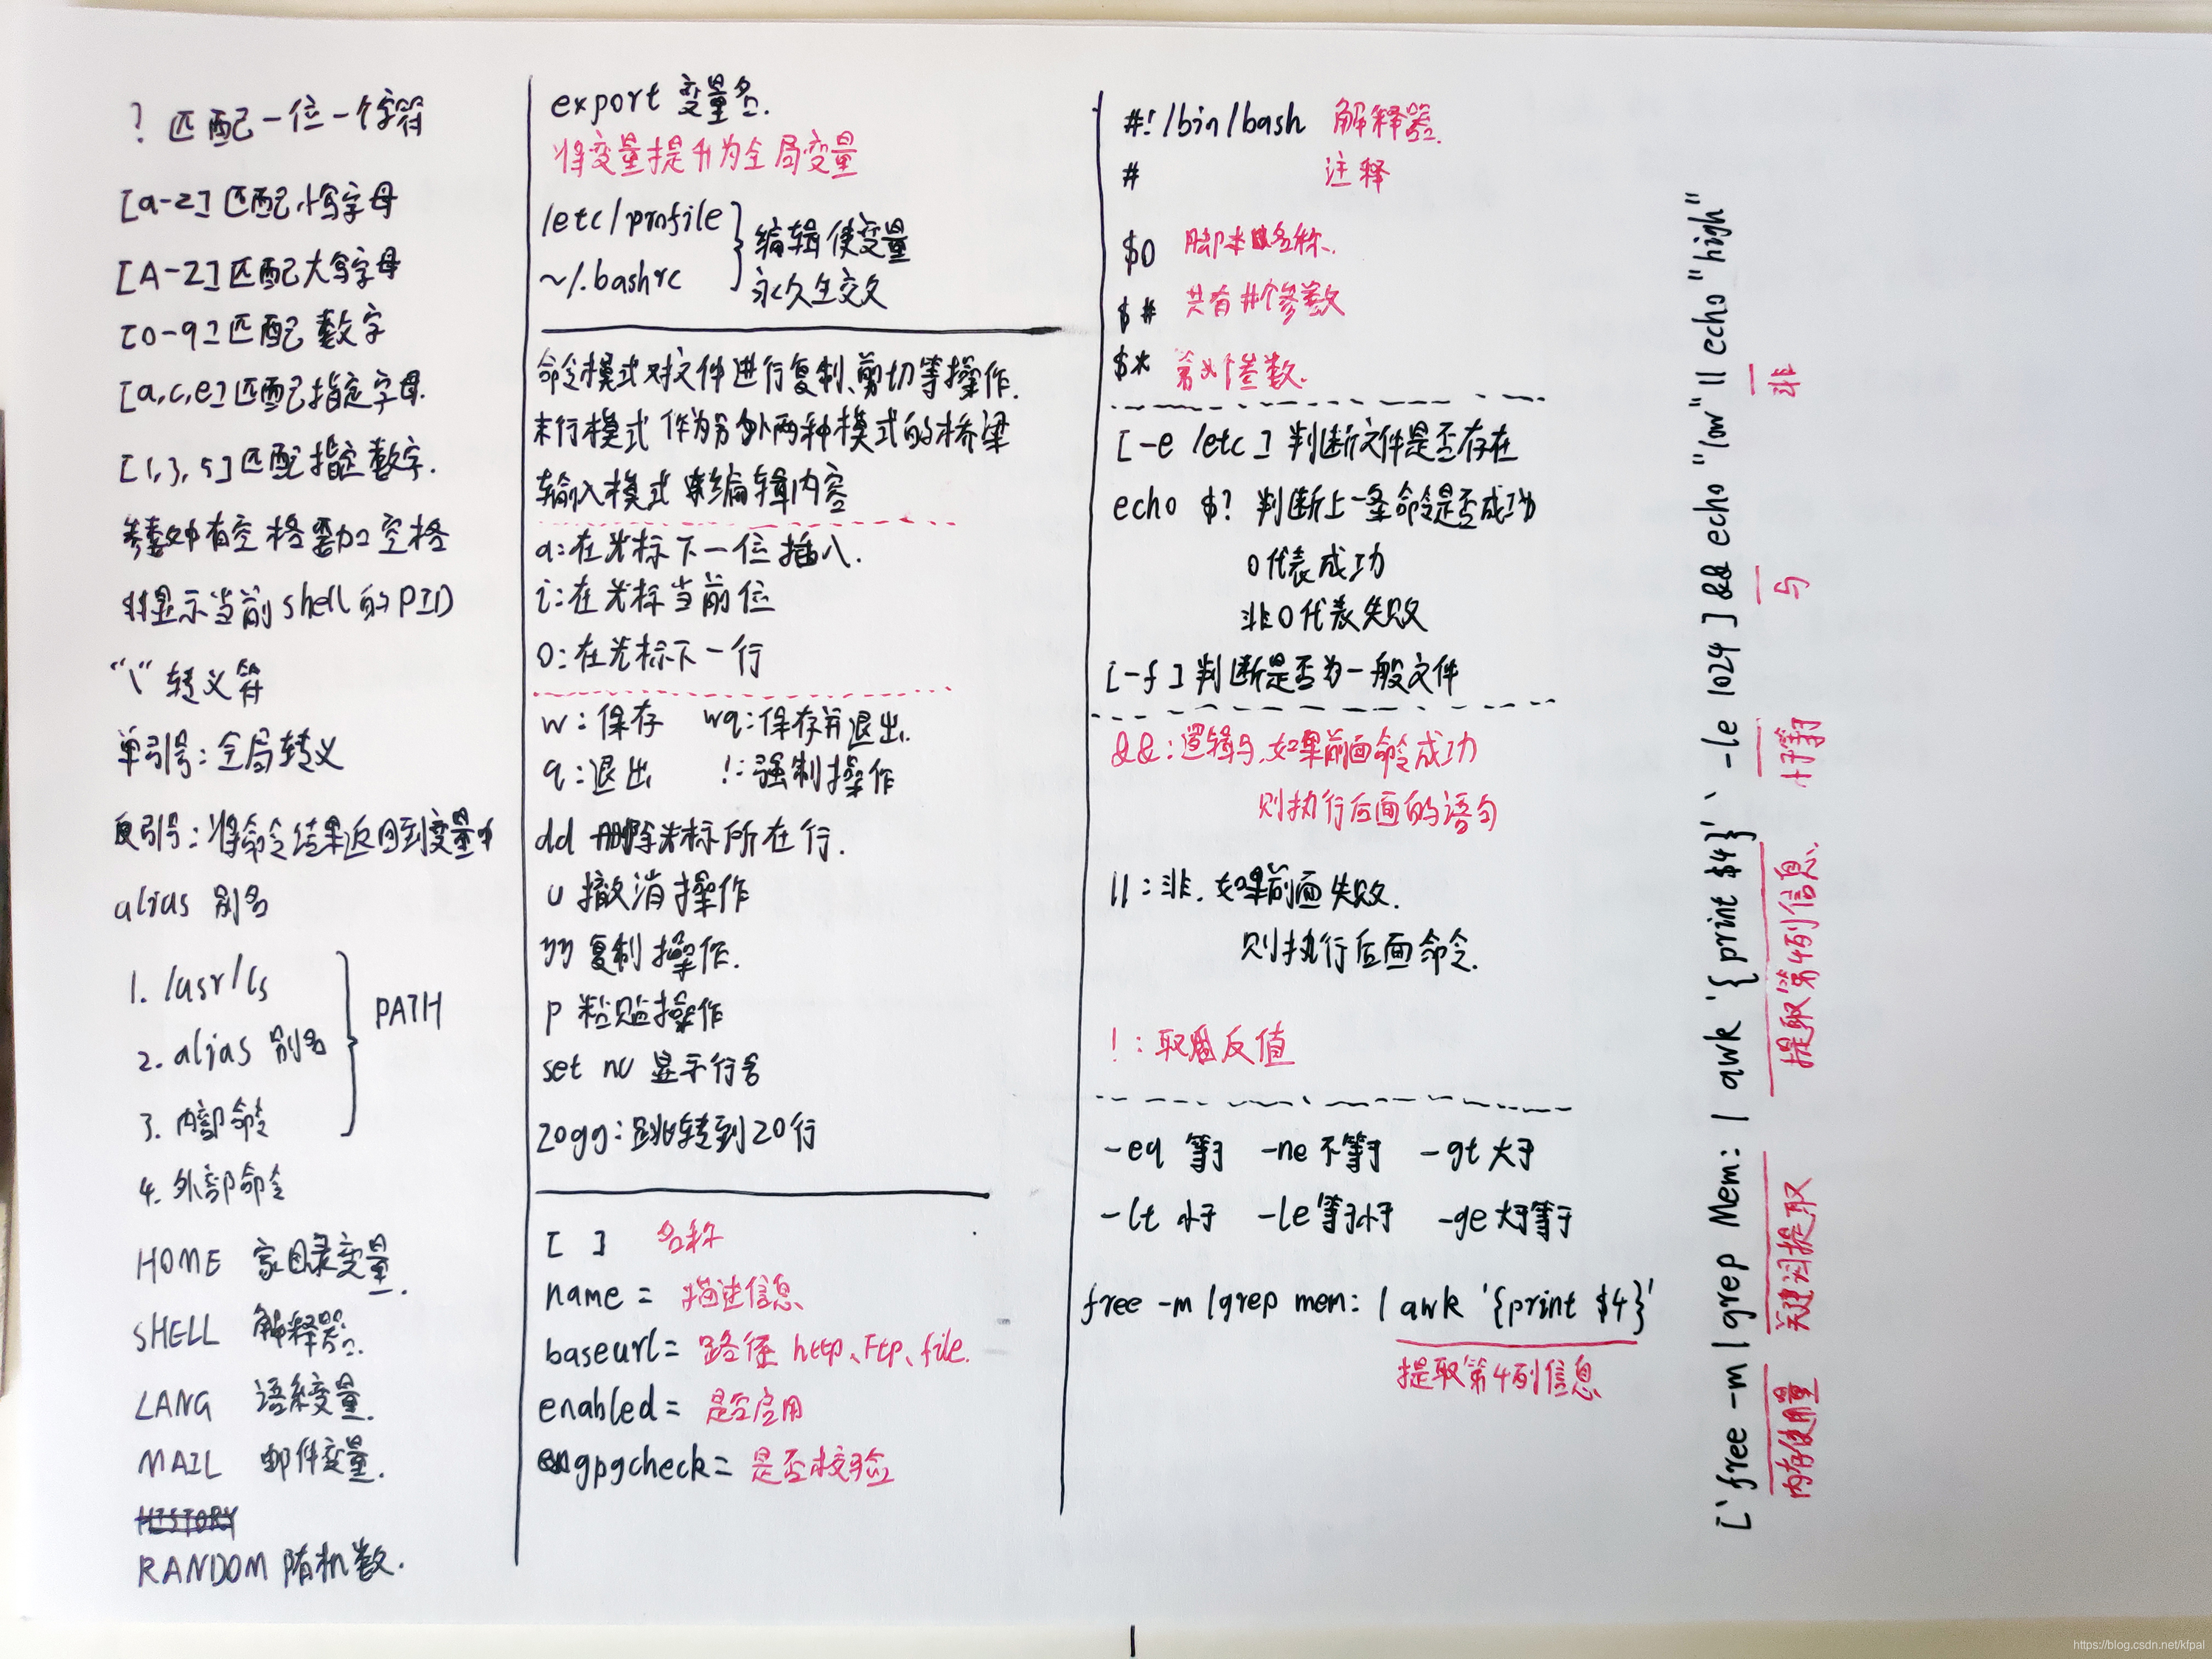 ? 匹配一位一个字符
[a-z] 匹配小写字母
[A-Z] 匹配大写字母
[0-9] 匹配数字
[a,c,e] 匹配指定字母.
[1,3,5] 匹配指定数字.
参数中有空格需加空格
显示当前shell的PID
"\" 转义符
单引号: 全局转义
反引号: 将命令结果返回到变量中
alias 别名
1. /usr/ls
2. alias 别名
3. 内部命令
PATH
4. 外部命令
HOME 家目录变量.
SHELL 解释器.
LANG 语系变量.
MAIL 邮件变量.
HISTORY
RANDOM 随机数.
export 变量名.
将变量提升为全局变量
/etc/profile
~/.bashrc
编辑使变量
永久生效
命令模式对文件进行复制、剪切等操作.
末行模式 作为另外两种模式的桥梁
输入模式 编辑内容
a: 在光标下一位插入.
i: 在光标当前位
o: 在光标下一行
w: 保存 wq: 保存并退出.
q: 退出 !: 强制操作
dd 删除光标所在行.
u 撤消操作
yy 复制操作.
p 粘贴操作
set nu 显示行号
20gg: 跳转到20行
[ ] 名称
name = 描述信息
baseurl = 路径 http、Ftp、file.
enabled = 是否启用
gpgcheck = 是否校验
#!/bin/bash 解释器.
# 注释
$0 脚本名称.
$# 共有#个参数
$* 第个参数.
[ -e /etc ] 判断文件是否存在
echo $? 判断上一条命令是否成功
0代表成功
非0代表失败
[ -f ] 判断是否为一般文件
&&: 逻辑与, 如果前面命令成功
则执行后面的语句
||: 非. 如果前面失败.
则执行后面命令.
!: 取反值
-eq 等于 -ne 不等于 -gt 大于
-lt 小于 -le 等于小于 -ge 大于等于
free -m | grep mem: | awk '{print $4}'
提取第4列信息
[ `free -m | grep Mem: | awk '{print $4}'` -le 1024 ] && echo "low" || echo "high"
内存使用量 关键词提取 提取第4列信息 小于等于 与 非
1
https://blog.csdn.net/kfpal